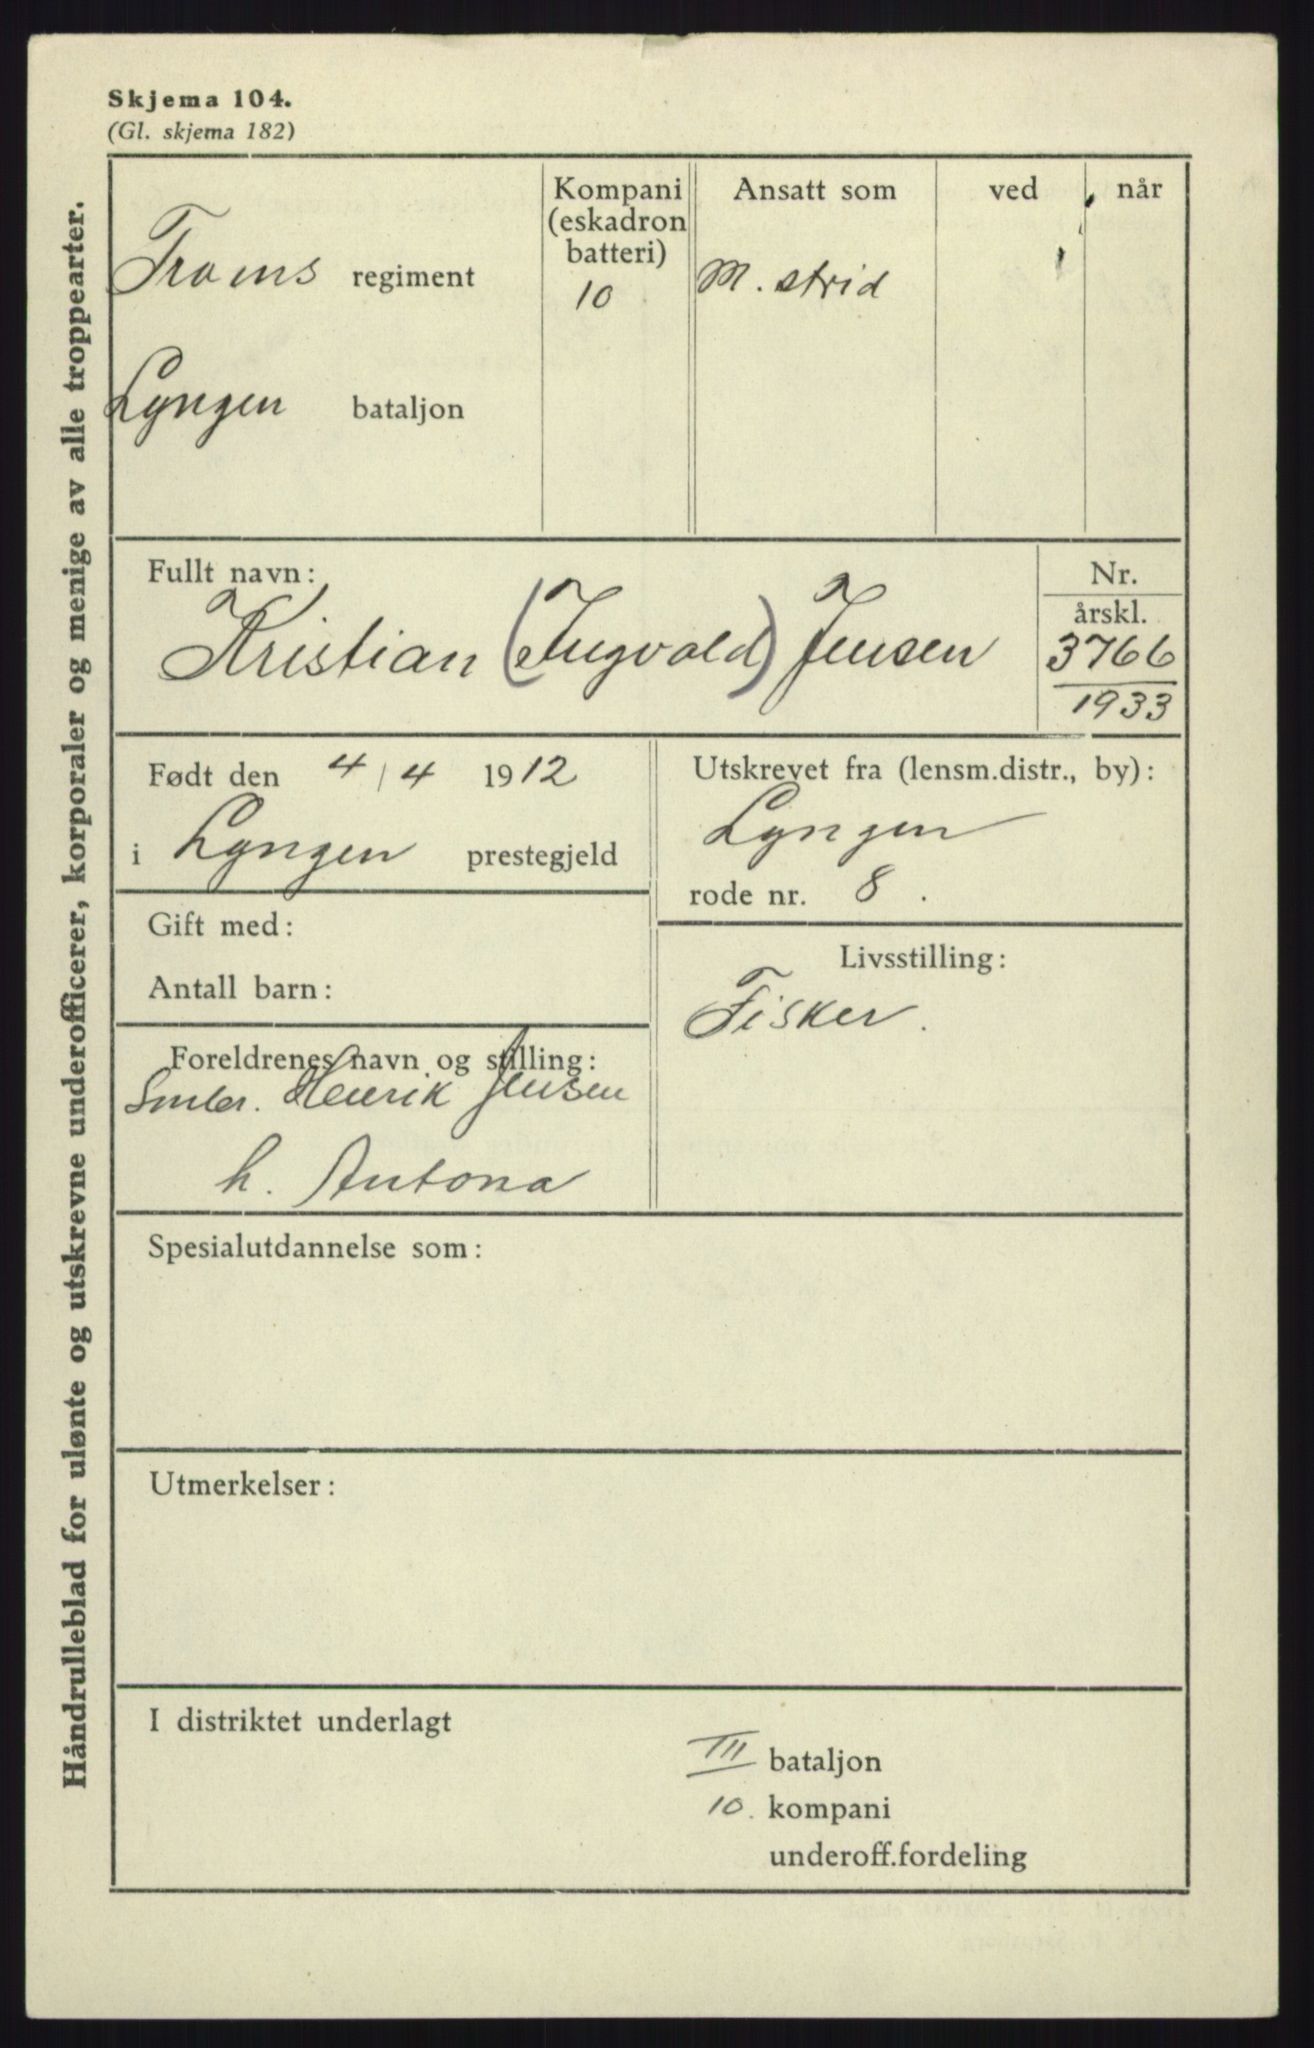 Skjema 104.
(Gl. skjema 182)
Håndrulleblad for ulønte og utskrevne underofficerer, korporaler og menige av alle troppearter.
Troms regiment
Lyngen bataljon
Kompani
(eskadron
batteri)
10
Ansatt som
M. strid
ved
når
Fullt navn:
Kristian (Ingvald) Jensen
Nr.
årskl.
3766
1933
Født den 4/4 1912
i Lyngen prestegjeld
Utskrevet fra (lensm.distr., by):
Lyngen
rode nr. 8.
Gift med:
Antall barn:
Livsstilling:
Fisker.
Foreldrenes navn og stilling:
Smbr. Henrik Jensen
h. Antona
Spesialutdannelse som:
Utmerkelser:
I distriktet underlagt
III bataljon
10. kompani
underoff.fordeling